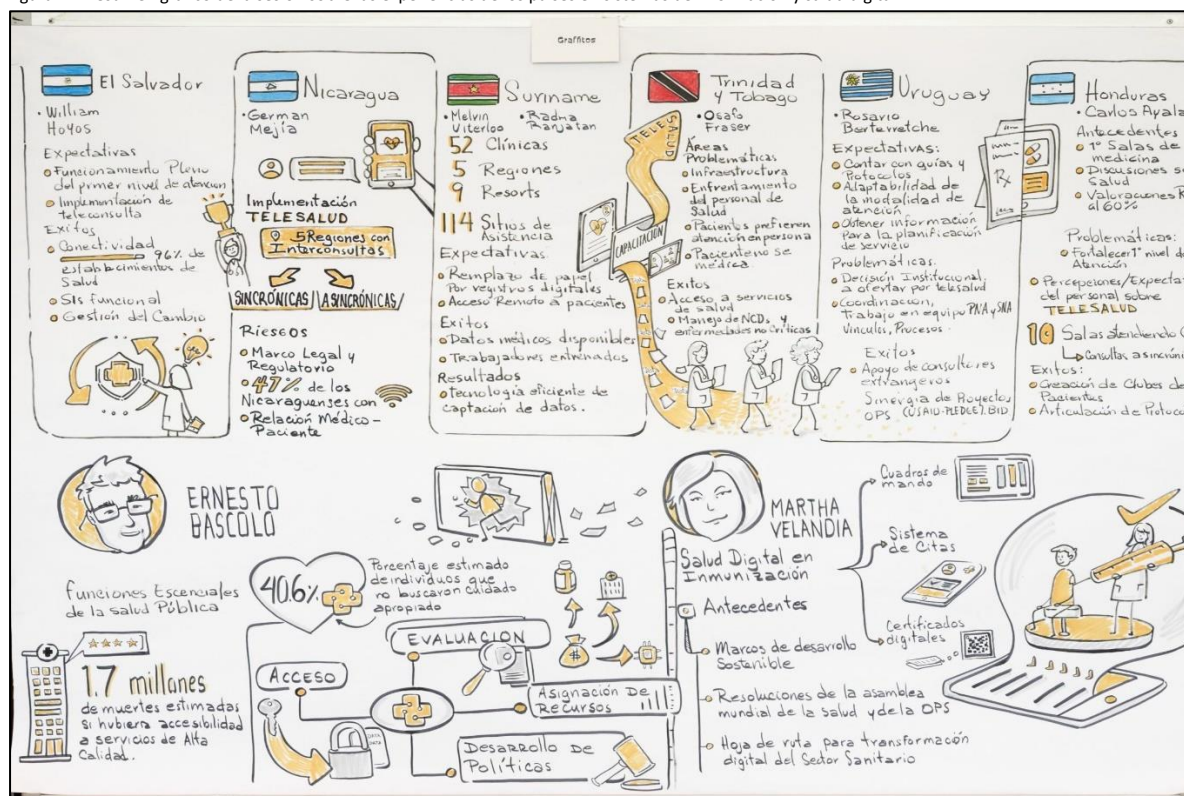 Graffitos
El Salvador
• William
Hoyos
Expectativas
Funcionamiento Pleno
del primer nivel de atención
Implementación de
teleconsulta
Exitos
Conectividad
96% de
establecimientos de
Salud
SIS funcional
Gestión del Cambio
Nicaragua
• German
Mejía
Implementación
TELESALUD
5 Regiones con
Interconsultas
SINCRÓNICAS/ASINCRÓNICAS/
Riesgos
Marco Legal y
Regulatorio
47% de los
Nicaraguenses con
Relación Médico-
Paciente
Suriname
• Melvin
Uiterloo
• Radha
Ramjatan
52 Clínicas
5 Regiones
9 Resorts
114 Sitios de
Asistencia
Expectativas
Remplazo de papel
Por registros digitales
Acceso Remoto a pacientes
Exitos
Datos médicos disponibles
Trabajadores entrenados
Resultados
tecnología eficiente de
captación de datos.
Trinidad
y Tobago
• Osafo
Fraser
TELE
SALUD
CAPACITACIÓN
Áreas
Problemáticas
Infraestructura
Enfrentamiento
del personal de
Salud
Pacientes prefieren
atención en persona
Paciente no se
médica
Exitos
Acceso a servicios
de salud
Manejo de NCDs, y
enfermedades no Críticas
Uruguay
• Rosario
Berterretche
Expectativas:
Contar con guías y
Protocolos
Adaptabilidad de
la modalidad de
atención
Obtener información
Para la planificación
de servicio
Problemáticas.
Decisión Institucional
a ofertar por telesalud
Coordinación,
Trabajo en equipo PNA y SNA
Vinculos, Procesos.
Exitos
Apoyo de consultores
extrangeros
Sinergia de Proyectos
OPS (USAID-PLEDGE), BID
Rx
Honduras
• Carlos Ayala
Antecedentes
1º Salas de
medicina
Discusiones
Salud
Valoraciones
al 60%
Problemáticas:
Fortalecer 1º nivel de
Atención
Percepciones/
del personal sobre
TELESALUD
10 Salas atendiendo
Consultas
Exitos:
Creación de Clubes de
Pacientes
Articulación de
ERNESTO
BASCOLO
funciones Escenciales
de la salud Pública
1.7 millones
de muertes estimadas
si hubiera accesibilidad
a servicios de Alta
Calidad.
40.6%
Porcentaje estimado
de individuos que
no buscaron cuidado
apropiado
EVALUACION
ACCESO
DATA
DATA
Asignación De
Recursos
Desarrollo De
Políticas
MARTHA
VELANDIA
Salud Digital en
Inmunización
Antecedentes
Marcos de desarrollo
Sostenible
Resoluciones de la asamblea
mundial de la salud y de la OPS
Hoja de ruta para transformación
digital del Sector Sanitario
Cuadros de
mando
Sistema
de Citas
Certificados
digitales